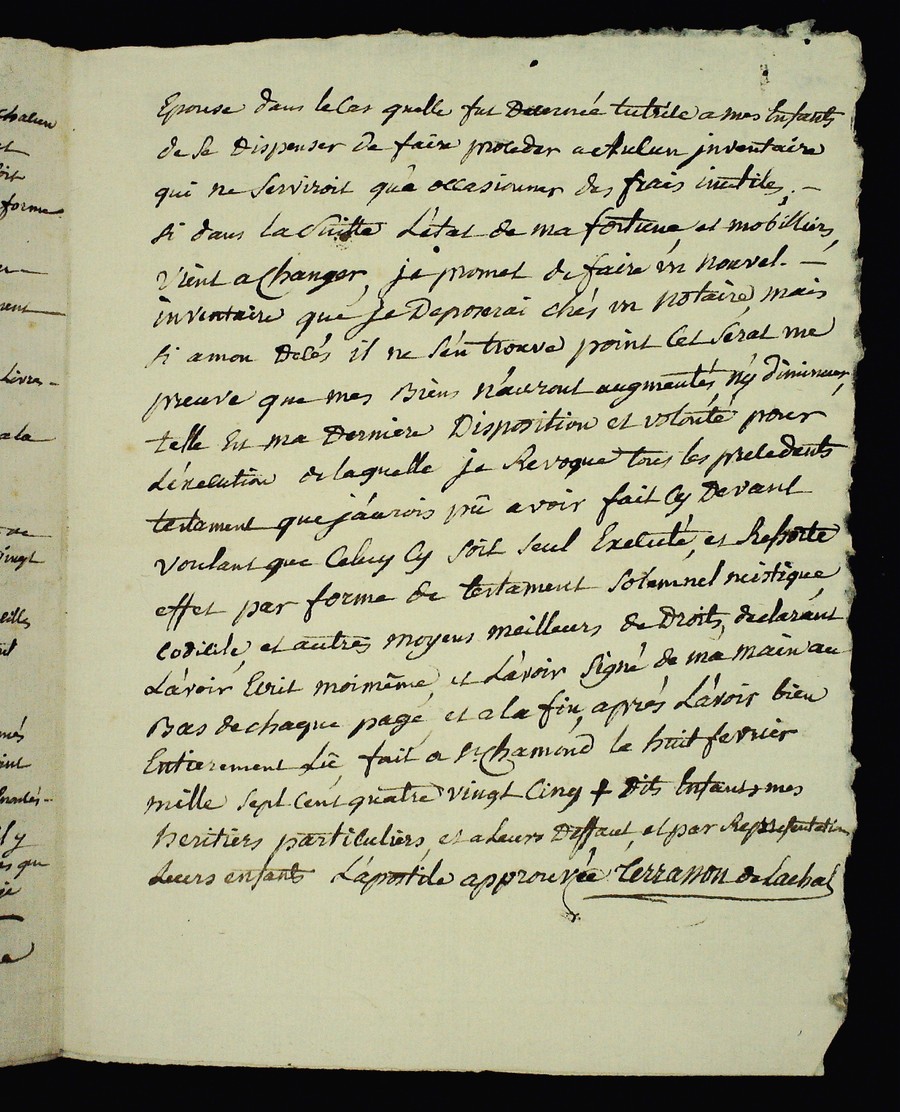 chalieu
Epouse dans le Cas quelle fut Decernée tutrice a mes Enfants
de se Dispenser De faire proceder a aucun jnventaire
qui ne Serviroit qu'a occasionner des frais inutiles. —
forme
si dans la Suitte L'état de ma fortune et mobilliers,
Vient a Changer, je promet de faire un nouvel. —
inventaire que je Deposerai chés un notaire, mais
si a mon Decés il ne s'en trouve point Cet Serat une
Livres
preuve que mes Biens n'auront augmentés, n'y diminuer,
a la
telle Est ma Derniere Disposition et volonté pour
L'execution de laquelle je Revoque tous les precedents
testament que j'aurois pû avoir fait Cy Devant
vingt
voulant que Celuy Cy soit seul Executé, et Ressorte
effet par forme de testament Solemnel mistique,
codicile, et autres moyens meilleurs de Droits, declarant
L'avoir Ecrit moimême, et L'avoir Signé de ma main au
Bas de chaque page, et a la fin, aprés L'avoir bien
Entierement Lû, fait a St. Chamond le huit fevrier
mille sept Cent quatre vingt Cinq + Dits Enfants mes
heritiers particuliers, et a Leurs Deffaut, et par Representation
Leurs enfants L'apostile approuvée Terrasson de Lachal
je